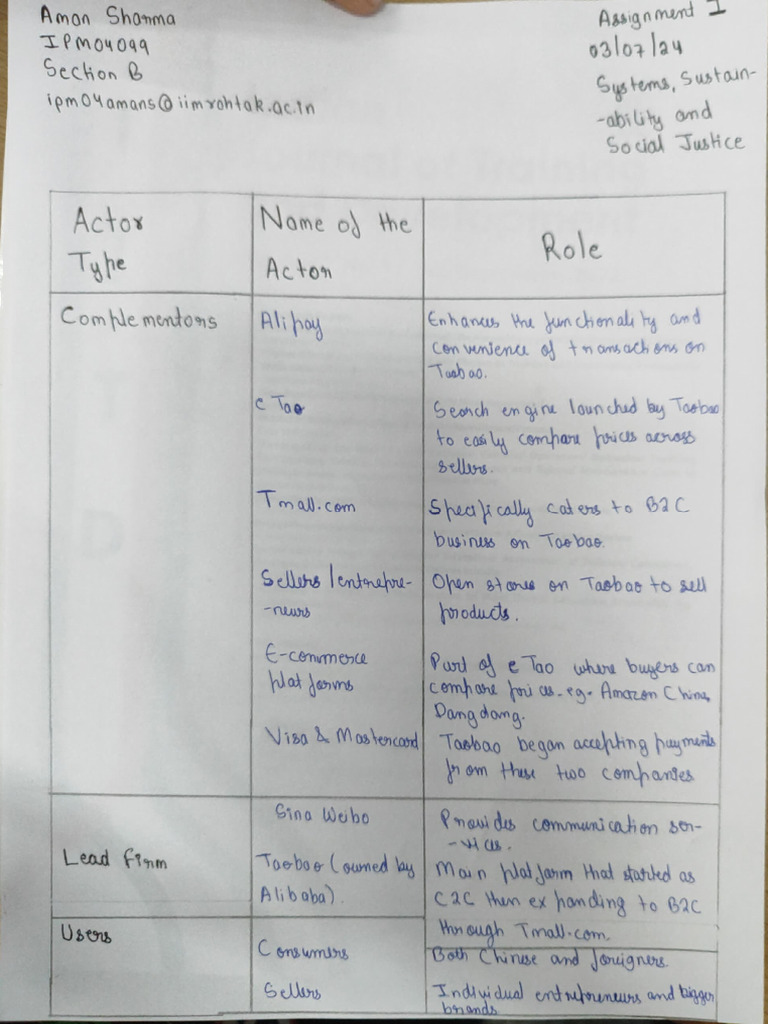 Aman Sharma
IPM04099
Section B
ipm04amans@iimrohtak.ac.in
Assignment I
03/07/24
Systems, Sustain-
-ability and
Social Justice
Actor
Type
Name of the
Actor
Role
Complementors
Alipay
Enhances the functionality and
convenience of transactions on
Taobao.
eTao
Search engine launched by Taobao
to easily compare prices across
sellers.
Tmall.com
Specifically caters to B2C
business on Taobao.
Sellers/entrepre-
-neurs
Open stores on Taobao to sell
products.
E-commerce
platforms
Part of eTao where buyers can
compare prices. eg. Amazon China,
Dangdang.
Visa & Mastercard
Taobao began accepting payments
from these two companies
Sina Weibo
Provides communication ser-
-vices.
Lead Firm
Taobao (owned by
Alibaba).
Main platform that started as
C2C then expanding to B2C
through Tmall.com.
Users
Consumers
Both Chinese and foreigners.
Sellers
Individual entrepreneurs and bigger
brands